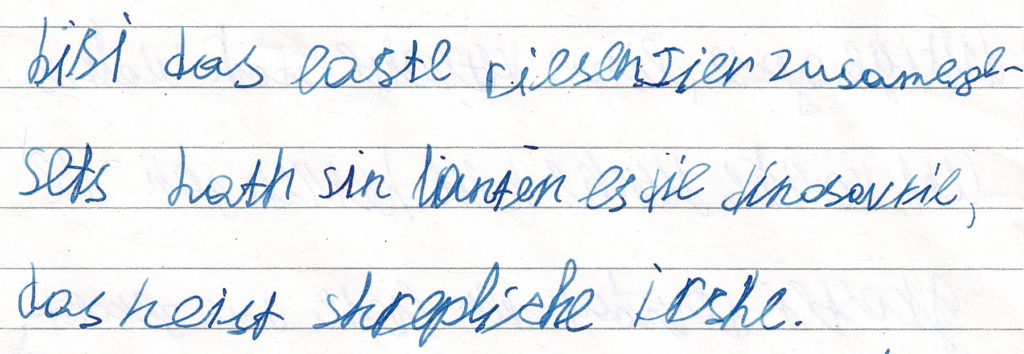 bist das easte riesentier zusamege-
sets hath sin lanten es die dinosaurie,
das heist shreplishe irshe.